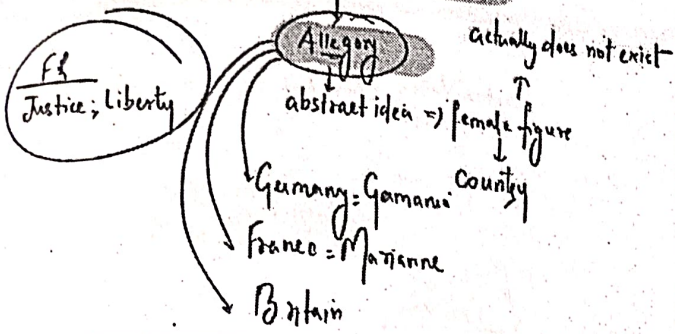 Allegory
actually does not exist
Justice; Liberty
abstract idea => female figure
Country
Germany = Gamania
France = Marianne
Britain